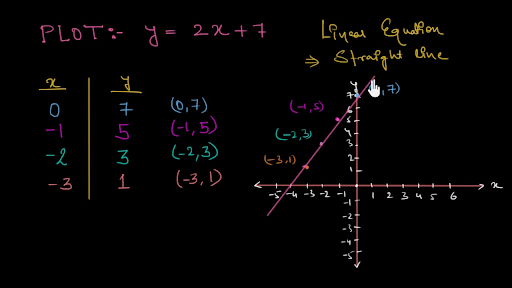 PLOT:- y = 2x+7
Linear Equation
⇒ Straight line
x y
0 7 (0,7)
-1 5 (-1,5)
-2 3 (-2,3)
-3 1 (-3,1)
y
7
6
5
4
3
2
1
-1
-2
-3
-4
-5
-5 -4 -3 -2 -1 1 2 3 4 5 6
x
,7)
(-1,5)
(-2,3)
(-3,1)